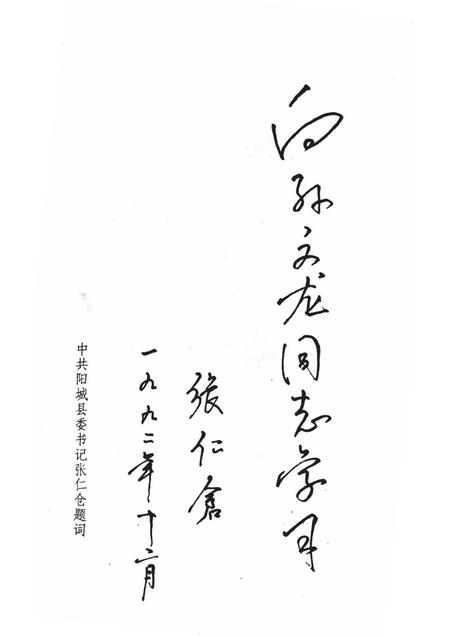 向孙文龙同志学习
张仁倉
一九九二年十二月
中共阳城县委书记张仁仓题词